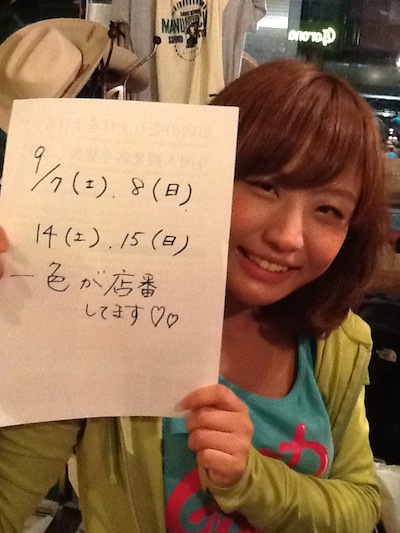 MANU
Corona
9/7(土). 8(日)
14(土). 15(日)
一色が店番
してます♡♡